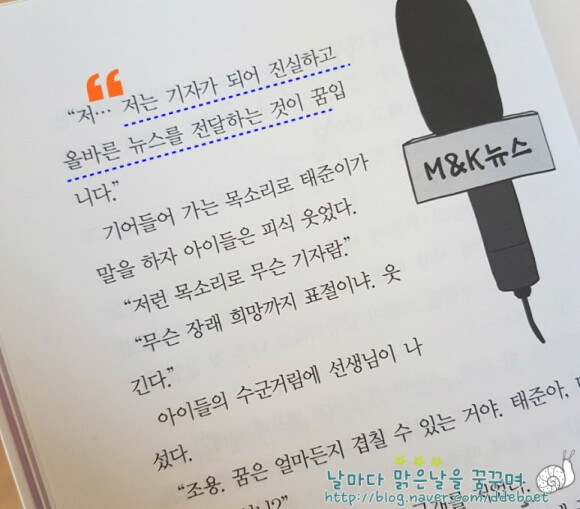 “저… 저는 기자가 되어 진실하고
올바른 뉴스를 전달하는 것이 꿈입
니다.”
기어들어 가는 목소리로 태준이가
말을 하자 아이들은 피식 웃었다.
“저런 목소리로 무슨 기자람.”
“무슨 장래 희망까지 표절이냐. 웃
긴다.”
아이들의 수군거림에 선생님이 나
섰다.
“조용. 꿈은 얼마든지 겹칠 수 있는 거야. 태준아,
M&K뉴스
날마다 맑은날을 꿈꾸며
http://blog.naver.com/ddeboet